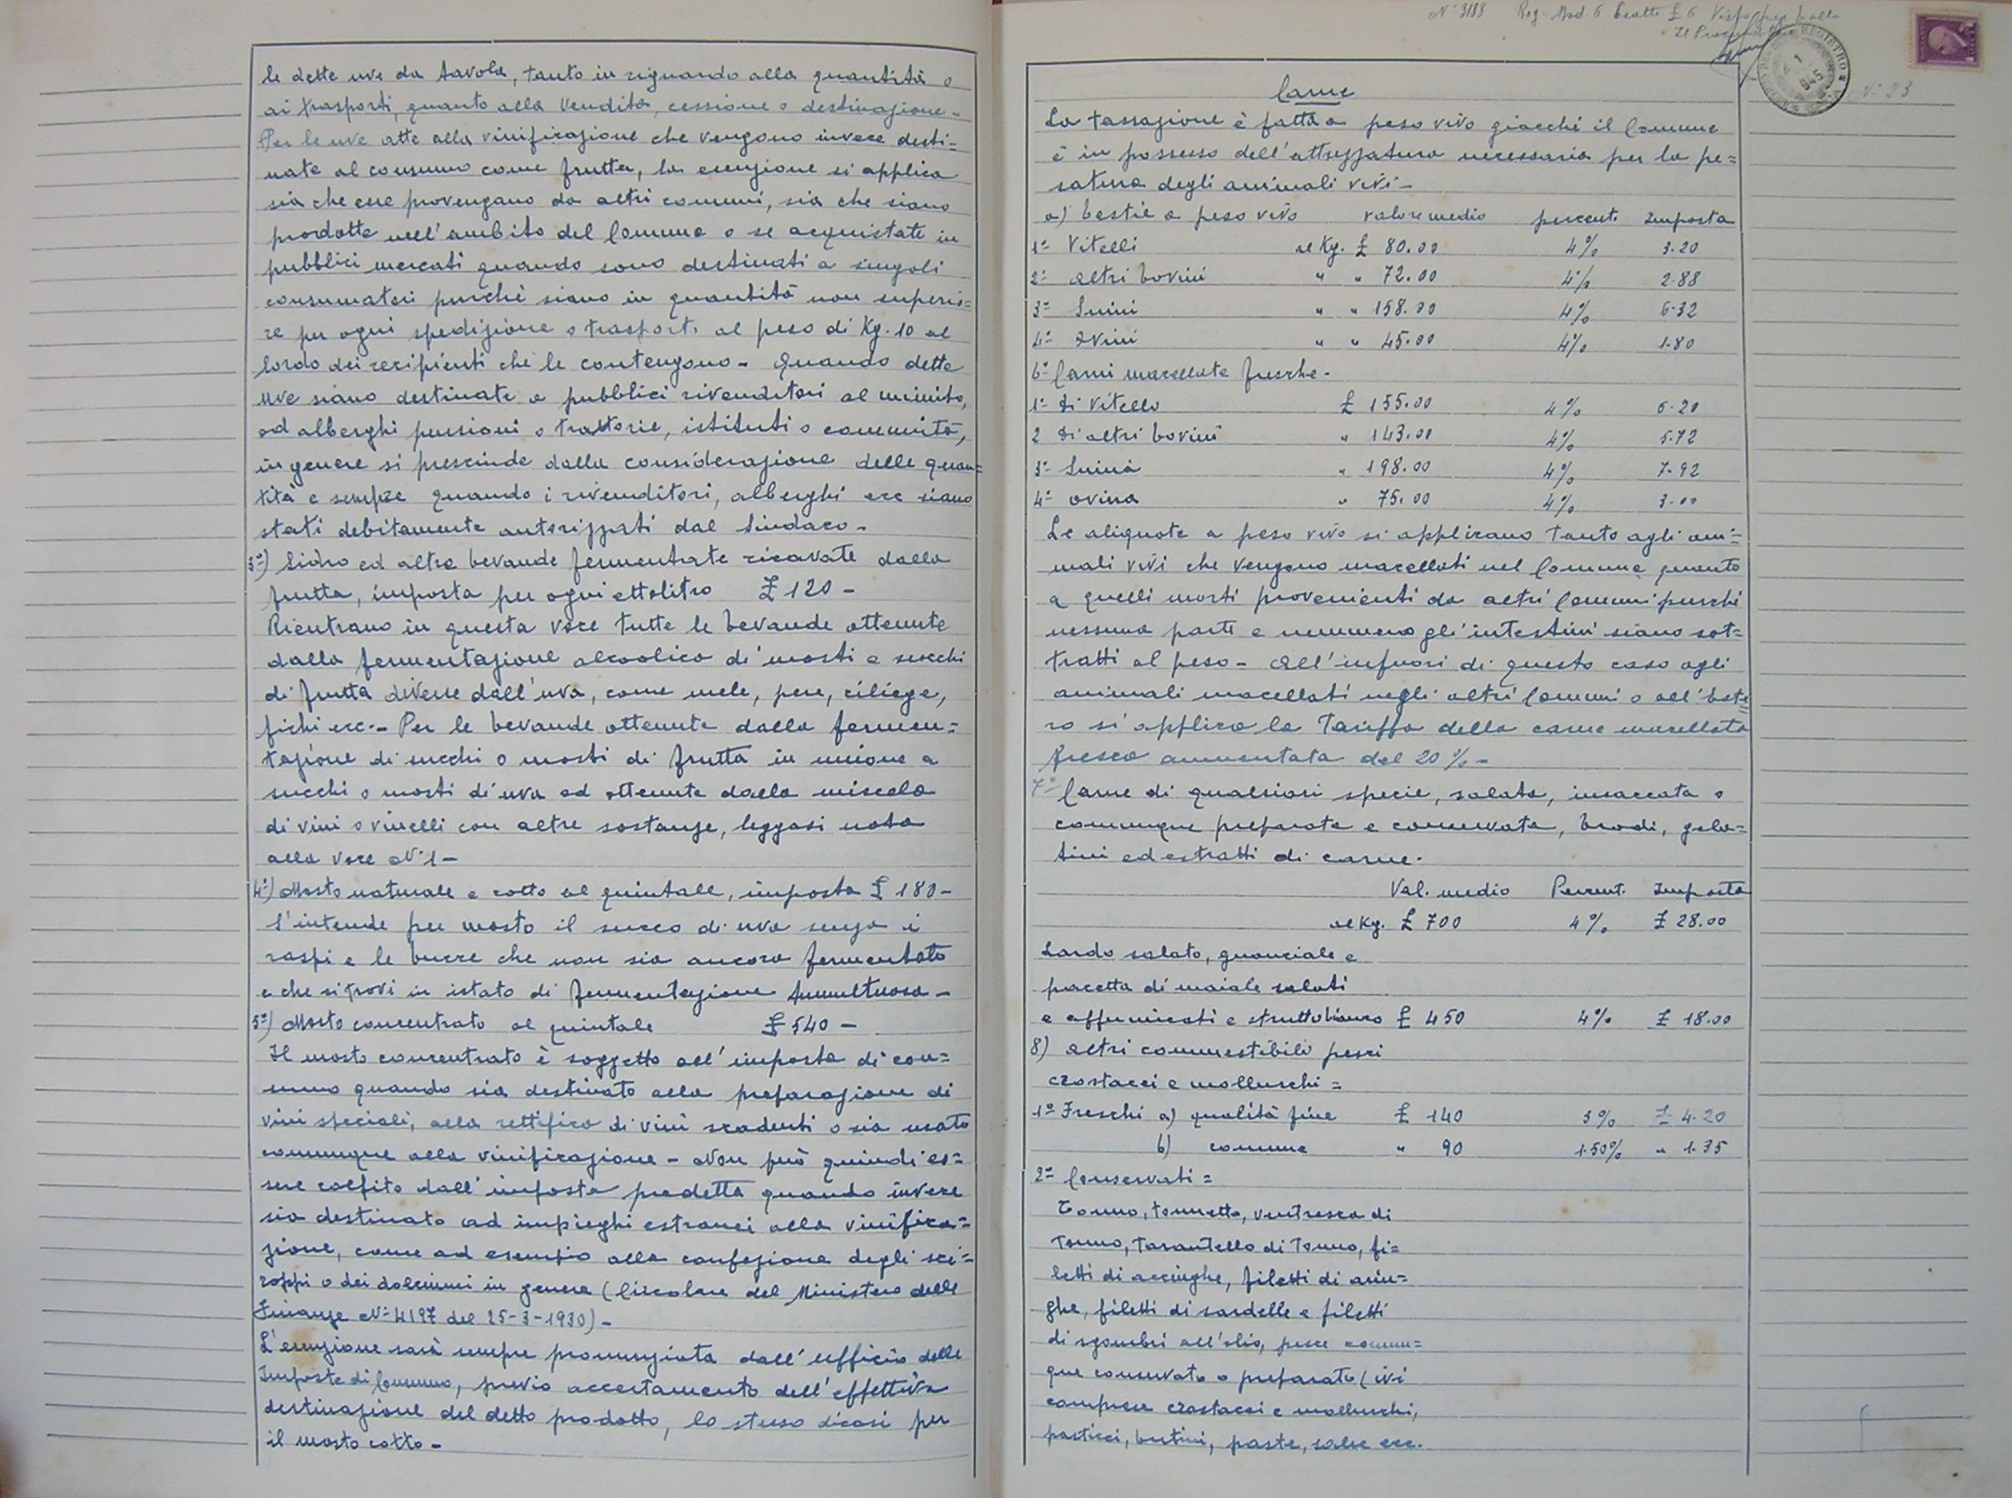 le dette uve da tavola, tanto in riguardo alla quantità o
ai trasporti, quanto alla vendita, cessione o destinazione -
Per le uve atte alla vinificazione che vengono invece desti=
nate al consumo come frutta, la esenzione si applica
sia che esse provengano da altri comuni, sia che siano
prodotte nell'ambito del Comune o se acquistate in
pubblici mercati quando sono destinati a singoli
consumatori purchè siano in quantità non superio=
re per ogni spedizione o trasporti al peso di Kg. 10 al
lordo dei recipienti che le contengono - Quando dette
uve siano destinate a pubblici rivenditori al minuto,
ad alberghi pensioni o trattorie, istituti o comunità,
in genere si prescinde dalla considerazione delle quan=
tità e sempre quando i rivenditori, alberghi ecc siano
stati debitamente autorizzati dal Sindaco -
3º) Sidro ed altre bevande fermentate ricavate dalla
frutta, imposta per ogni ettolitro £ 120 -
Rientrano in questa voce tutte le bevande ottenute
dalla fermentazione alcoolica di mosti e succhi
di frutta diverse dall'uva, come mele, pere, ciliege,
fichi ecc - Per le bevande ottenute dalla fermen=
tazione di succhi o mosti di frutta in unione a
succhi o mosti di uva od ottenute dalla miscela
di vini o vinelli con altre sostanze, leggasi nota
alla voce Nº 1 -
4º) Mosto naturale e cotto al quintale, imposta £ 180 -
S'intende per mosto il succo di uva senza i
raspi e le bucce che non sia ancora fermentato
e che si trovi in istato di fermentazione tumultuosa -
5º) Mosto concentrato al quintale £ 540 -
Il mosto concentrato è soggetto all'imposta di con=
sumo quando sia destinato alla preparazione di
vini speciali, alla rettifica di vini scadenti o sia usato
comunque alla vinificazione - Non può quindi es=
sere colpito dall'imposta predetta quando invece
sia destinato ad impieghi estranei alla vinifica=
zione, come ad esempio alla confezione degli sci=
roppi o dei dolciumi in genere (Circolare del Ministero delle
Finanze Nº 4197 del 25-3-1930) -
L'esenzione sarà sempre pronunziata dall'ufficio delle
Imposte di Consumo, previo accertamento dell'effettiva
destinazione del detto prodotto, lo stesso dicasi per
il mosto cotto -
Nº 3188 Reg. Mod. 6 Esatte £ 6
Il Procuratore
REGISTRO
1945
Nº 23
Carne
La tassazione è fatta a peso vivo giacchè il Comune
è in possesso dell'attrezzatura necessaria per la pe=
satura degli animali vivi -
a) bestie a peso vivo valore medio percent. Imposta
1º Vitelli al Kg. £ 80.00 4% 3.20
2º Altri bovini " " 72.00 4% 2.88
3º Suini " " 158.00 4% 6.32
4º Ovini " " 45.00 4% 1.80
6º Carni macellate fresche -
1º Di Vitello £ 155.00 4% 6.20
2 Di altri bovini " 143.00 4% 5.72
3º Suina " 198.00 4% 7.92
4º ovina " 75.00 4% 3.00
Le aliquote a peso vivo si applicano tanto agli ani=
mali vivi che vengono macellati nel Comune quanto
a quelli morti provenienti da altri Comuni purchè
nessuna parte e nemmeno gli intestini siano sot=
tratti al peso - All'infuori di questo caso agli
animali macellati negli altri Comuni o all'Este=
ro si applica la Tariffa della carne macellata
fresca aumentata del 20% -
7º Carne di qualsiasi specie, salata, insaccata o
comunque preparata e conservata, brodi, gela=
tini ed estratti di carne.
Val. medio Percent. Imposta
al Kg. £ 700 4% £ 28.00
Lardo salato, guanciale e
pacetta di maiale salati
e affumicati e strutto bianco £ 450 4% £ 18.00
8) Altri commestibili pesci
crostacei e molluschi =
1º Freschi a) qualità fine £ 140 3% £ 4.20
b) comune " 90 1.50% " 1.35
2º Conservati =
Tonno, tonnetto, ventresca di
Tonno, Tarantello di Tonno, fi=
letti di acciughe, filetti di arin=
ghe, filetti di sardelle e filetti
di sgombri all'olio, pesce comun=
que conservato o preparato (ivi
comprese crostacei e molluschi,
pasticci, burtini, paste, salse ecc.